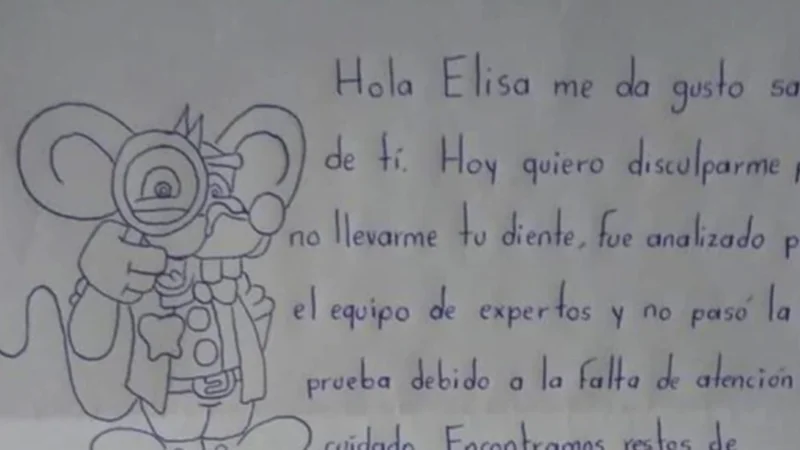 Hola Elisa me da gusto sa
de tí. Hoy quiero disculparme p
no llevarme tu diente, fue analizado p
el equipo de expertos y no pasó la
prueba debido a la falta de atención
cuidado. Encontramos restos de